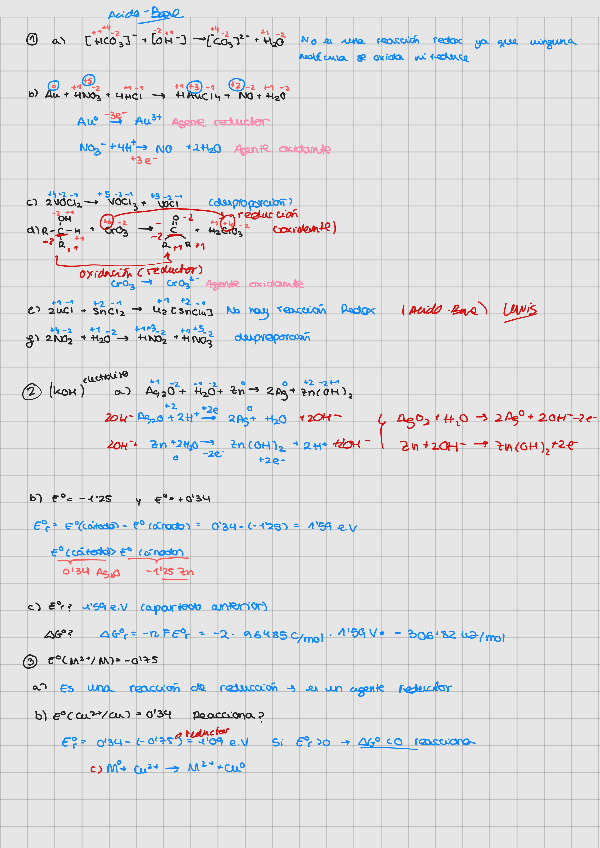 Acido-Base
① a) [HCO3]⁻ + [OH⁻] → [CO3]²⁻ + H2O No es una reacción redox ya que ninguna
molécula se oxida ni reduce
b) Au + 4HNO3 + 4HCl → HAuCl4 + NO + H2O
Au⁰ -3e⁻→ Au³⁺ Agente reductor
NO3⁻ + 4H⁺ → NO + 2H2O Agente oxidante
+3e⁻
c) 2VOCl2 → VOCl3 + VOCl (desproporción)
reducción
d) R-C-H + CrO3 → C + H2CrO3 (oxidante)
OH
R
O
R R
oxidación (reductor)
CrO3 → CrO3²⁻ Agente oxidante
e) 2LiCl + SnCl2 → Li2[SnCl4] No hay reacción Redox (Acido-Base) LEWIS
g) 2NO2 + H2O → HNO2 + HNO3 desproporción
② (KOH) electrolito a) Ag2O + H2O + Zn → 2Ag + Zn(OH)2
2OH⁻ + Ag2O + 2H⁺ +2e→ 2Ag + H2O +2OH⁻ { AgO2 + H2O → 2Ag⁰ + 2OH⁻ -2e⁻
2OH⁻ + Zn + 2H2O -2e→ Zn(OH)2 + 2H⁺ +2OH⁻ Zn + 2OH⁻ → Zn(OH)2 +2e⁻
+2e⁻
b) E⁰ = -1'25 y E⁰ = +0'34
E⁰r = E⁰(cátodo) - E⁰(ánodo) = 0'34 - (-1'25) = 1'59 e.V
E⁰(cátodo) > E⁰(ánodo)
0'34 Ag2O -1'25 Zn
c) E⁰r? 1'59 e.V (apartado anterior)
ΔG⁰? ΔG⁰r = -nFE⁰r = -2 · 96485 C/mol · 1'59 V = -306'82 kJ/mol
③ E⁰(M²⁺/M) = -0'75
a) Es una reacción de reducción → es un agente reductor
b) E⁰(Cu²⁺/Cu) = 0'34 Reacciona?
reductor
E⁰r = 0'34 - (-0'75) = 1'09 e.V Si E⁰r > 0 → ΔG⁰ < 0 reacciona
c) M⁰ + Cu²⁺ → M²⁺ + Cu⁰